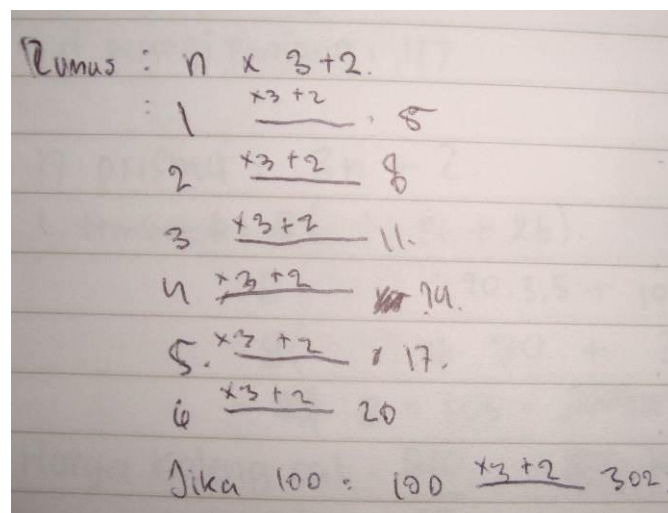 Rumus : n x 3+2.
: 1 x3+2 5
2 x3+2 8
3 x3+2 11.
4 x3+2 14.
5. x3+2 17.
6 x3+2 20
Jika 100 = 100 x3+2 302